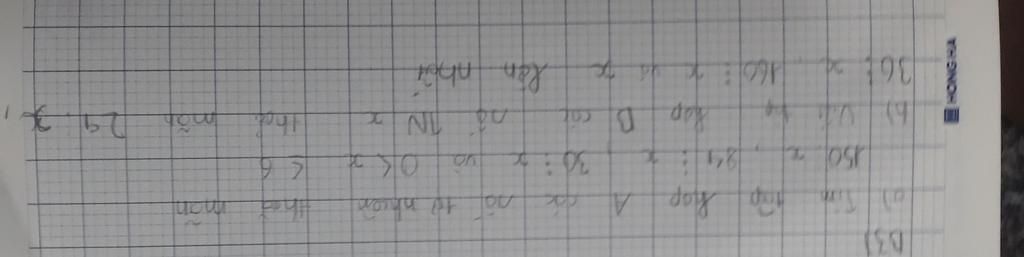 B3)
a) Tìm tập hợp A các số tự nhiên thoả mãn
150 x, 84 ⋮ x, 30 ⋮ x và 0 < x < 6
b) Viết tập hợp B các số TN x thoả mãn 24 ⋮ x,
36 ⋮ x, 160 ⋮ x và x lớn nhất
HONG HA